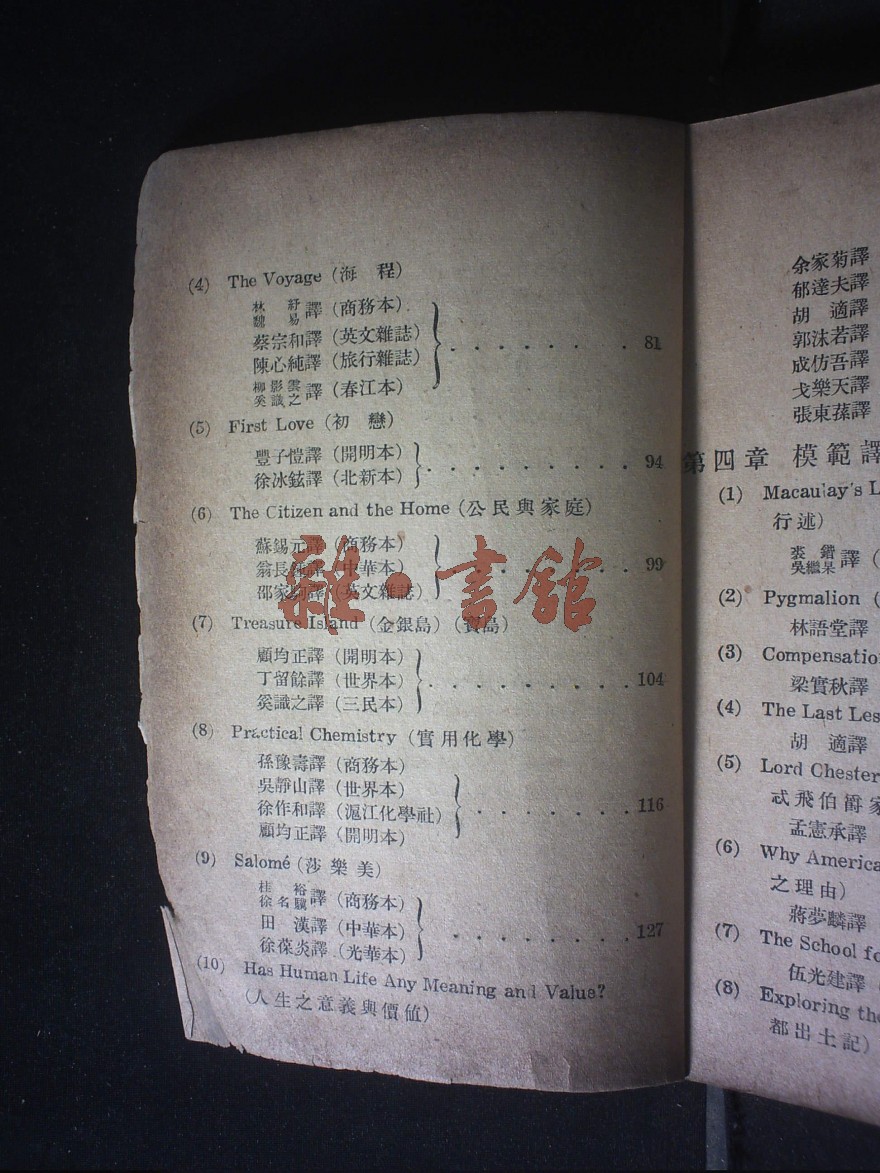 (4) The Voyage (海 程)
林 紓
魏 易 譯 (商務本)
蔡宗和譯 (英文雜誌)
陳心純譯 (旅行雜誌) . . . . . . . . 81
柳影雲
奚識之 譯 (春江本)
(5) First Love (初 戀)
豐子愷譯 (開明本)
徐冰鉉譯 (北新本) . . . . . . . . . 94
(6) The Citizen and the Home (公民與家庭)
蘇錫元譯 (商務本)
翁長 譯 (中華本) . . . . . . . . 99
邵家 譯 (英文雜誌)
雜·書館
(7) Treasure Island (金銀島) (寶島)
顧均正譯 (開明本)
丁留餘譯 (世界本) . . . . . . . . . 104
奚識之譯 (三民本)
(8) Practical Chemistry (實用化學)
孫豫壽譯 (商務本)
吳靜山譯 (世界本)
徐作和譯 (滬江化學社) . . . . . . . 116
顧均正譯 (開明本)
(9) Salomé (莎樂美)
桂 裕
徐名驥 譯 (商務本)
田 漢譯 (中華本)
徐葆炎譯 (光華本) . . . . . . . . 127
(10) Has Human Life Any Meaning and Value?
(人生之意義與價值)
余家菊譯
郁達夫譯
胡 適譯
郭沫若譯
成仿吾譯
戈樂天譯
張東蓀譯
第四章 模範譯
(1) Macaulay's L
行述)
裘 錯
吳繼杲 譯 (
(2) Pygmalion (
林語堂譯
(3) Compensatio
梁實秋譯
(4) The Last Les
胡 適譯
(5) Lord Chester
忒飛伯爵家
孟憲承譯
(6) Why America
之理由)
蔣夢麟譯
(7) The School fo
伍光建譯
(8) Exploring the
都出土記)